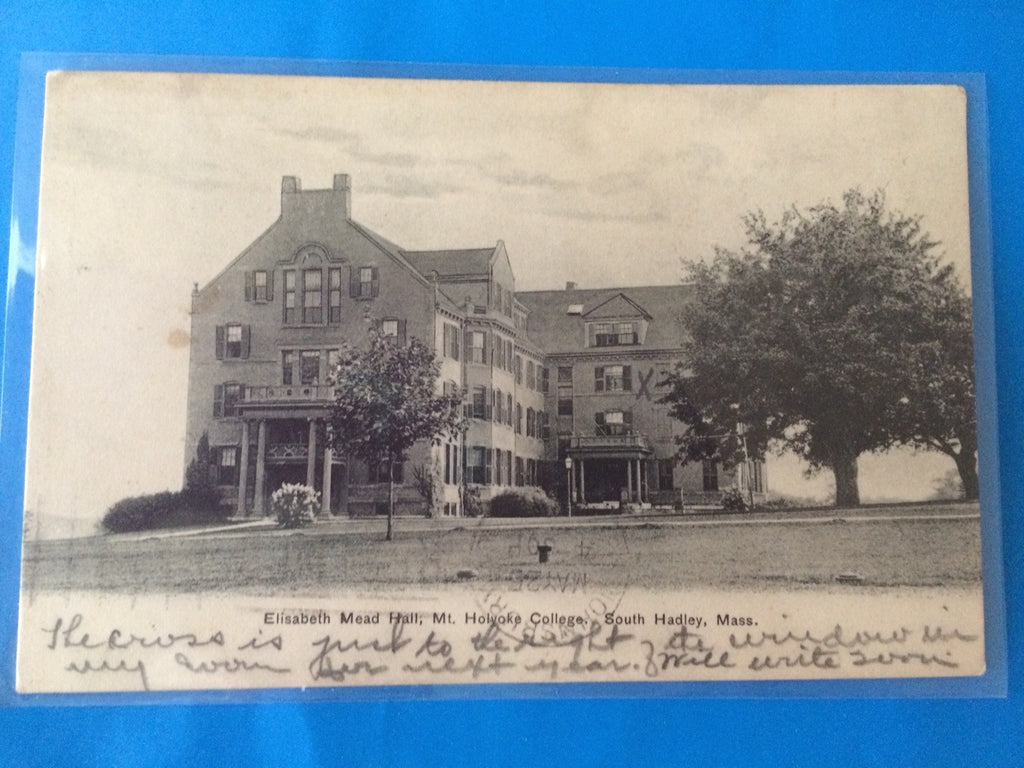 Elisabeth Mead Hall, Mt. Holyoke College, South Hadley, Mass.
The cross is just to the right of the window in
my room for next year. Will write soon